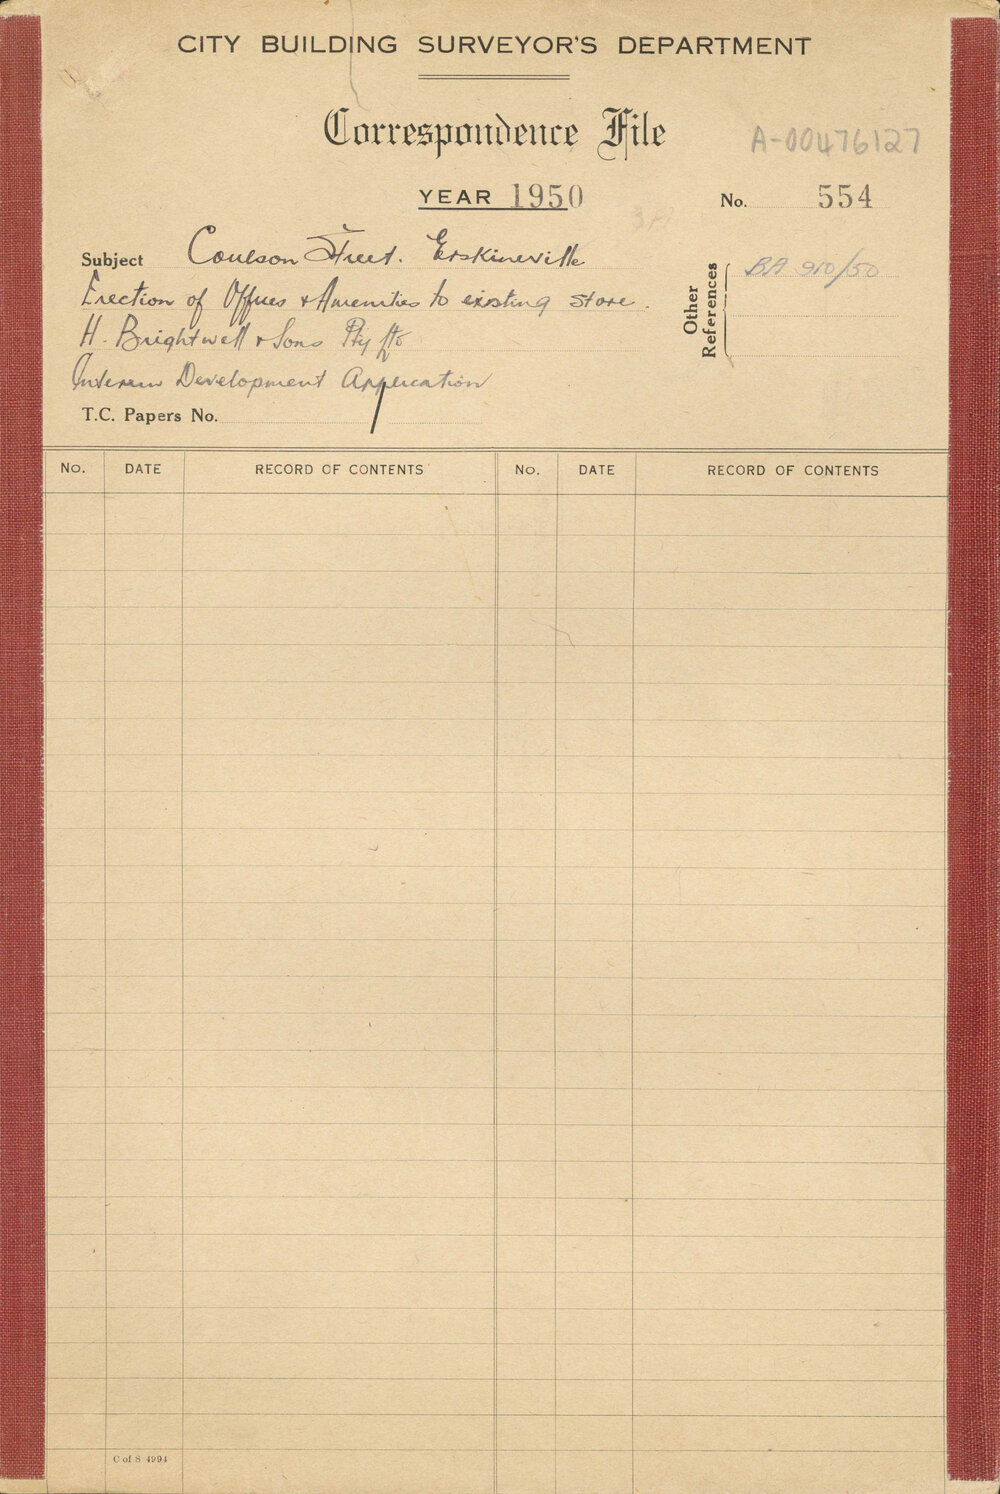 CITY BUILDING SURVEYOR'S DEPARTMENT
Correspondence File
A-00476127
YEAR 1950
No. 554
Subject Coulson Street. Erskineville
Erection of Offices & Amenities to existing store.
H. Brightwell & Sons Pty Ltd
Interim Development Application
Other References
BA 910/50
T.C. Papers No.
No. DATE RECORD OF CONTENTS No. DATE RECORD OF CONTENTS
C of S 4994